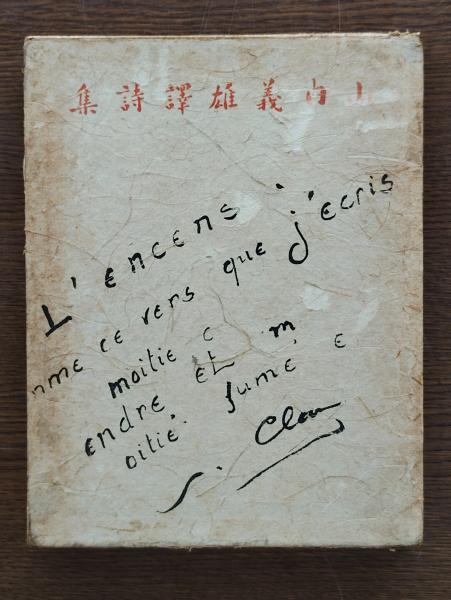 山内義雄譯詩集
L' encens
mme ce vers que j'ecris
moitie c
endre et m
oitié fumé e
Clau